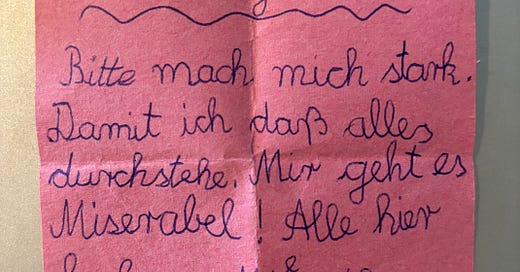 Bitte mach mich stark.
Damit ich daß alles
durchstehe. Mir geht es
Miserabel! Alle hier